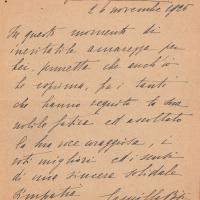 26 novembre 1926
In questo momento di
inevitabile amarezza per
Lei, permetta che anch'io
Le esprima, fra i tanti
che hanno seguito la Sua
nobile fatica ed ascoltato
la Sua voce coraggiosa, i
voti migliori ed i sensi
di una sincera solidale
simpatia
Camilla